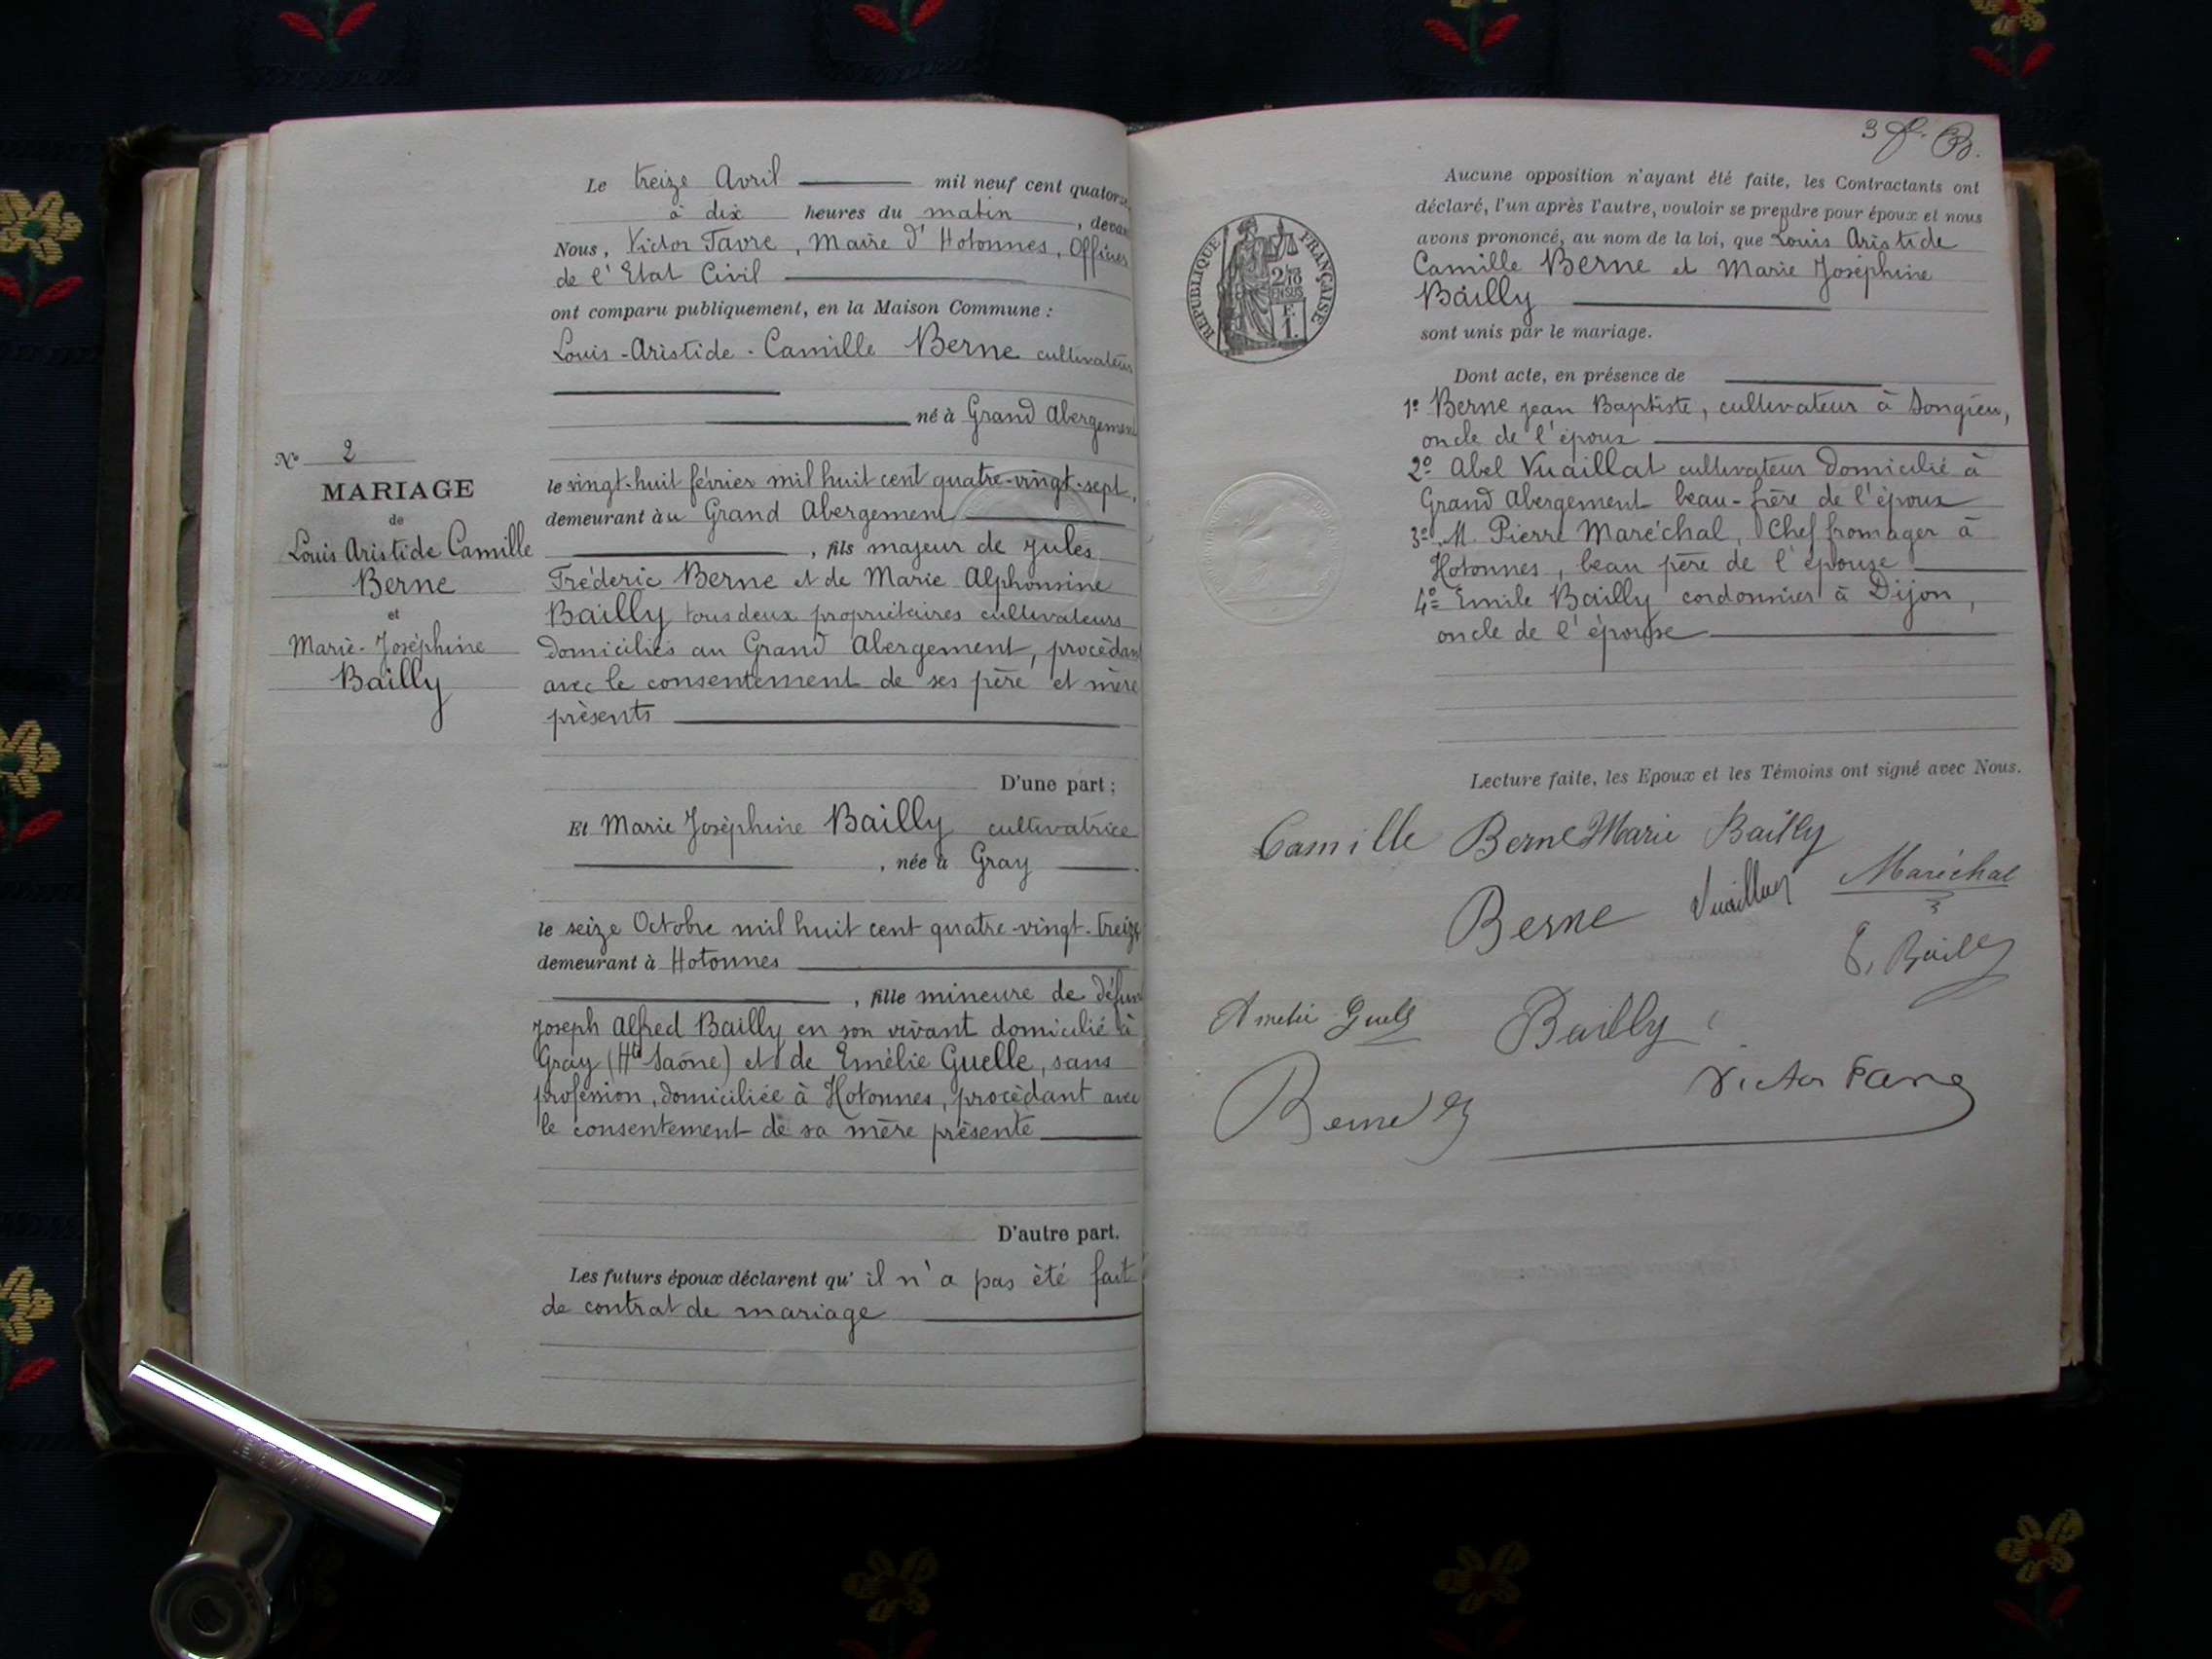 Le treize Avril mil neuf cent quatorze
à dix heures du matin, devant
Nous, Victor Favre, Maire d'Hotonnes, Officier
de l'Etat Civil
ont comparu publiquement, en la Maison Commune :
Louis-Aristide-Camille Berne cultivateur
né à Grand Abergement
No 2
MARIAGE
de
Louis Aristide Camille
Berne
et
Marie-Joséphine
Bailly
le vingt-huit février mil huit cent quatre-vingt-sept,
demeurant à u Grand Abergement
, fils majeur de Jules
Fréderic Berne et de Marie Alphonsine
Bailly tous deux propriétaires cultivateurs
domiciliés au Grand Abergement, procédant
avec le consentement de ses père et mère
présents
D'une part ;
Et Marie Joséphine Bailly cultivatrice
, née à Gray
le seize Octobre mil huit cent quatre-vingt-treize
demeurant à Hotonnes
, fille mineure de défunt
Joseph Alfred Bailly en son vivant domicilié à
Gray (Hte Saône) et de Emélie Guelle, sans
profession, domiciliée à Hotonnes, procédant avec
le consentement de sa mère présente
D'autre part.
Les futurs époux déclarent qu' il n'a pas été fait
de contrat de mariage
3
REPUBLIQUE FRANÇAISE
2/10
EN SUS
F.
1.
Aucune opposition n'ayant été faite, les Contractants ont
déclaré, l'un après l'autre, vouloir se prendre pour époux et nous
avons prononcé, au nom de la loi, que Louis Aristide
Camille Berne et Marie Joséphine
Bailly
sont unis par le mariage.
Dont acte, en présence de
1º Berne Jean Baptiste, cultivateur à Songieu,
oncle de l'époux
2º Abel Vuaillat cultivateur domicilié à
Grand Abergement beau-frère de l'époux
3º M. Pierre Maréchal, Chef fromager à
Hotonnes, beau père de l'épouse
4º Emile Bailly cordonnier à Dijon,
oncle de l'épouse
Lecture faite, les Epoux et les Témoins ont signé avec Nous.
Camille Berne Marie Bailly
Maréchal
Berne
E. Bailly
Bailly
Victor Favre
Berne